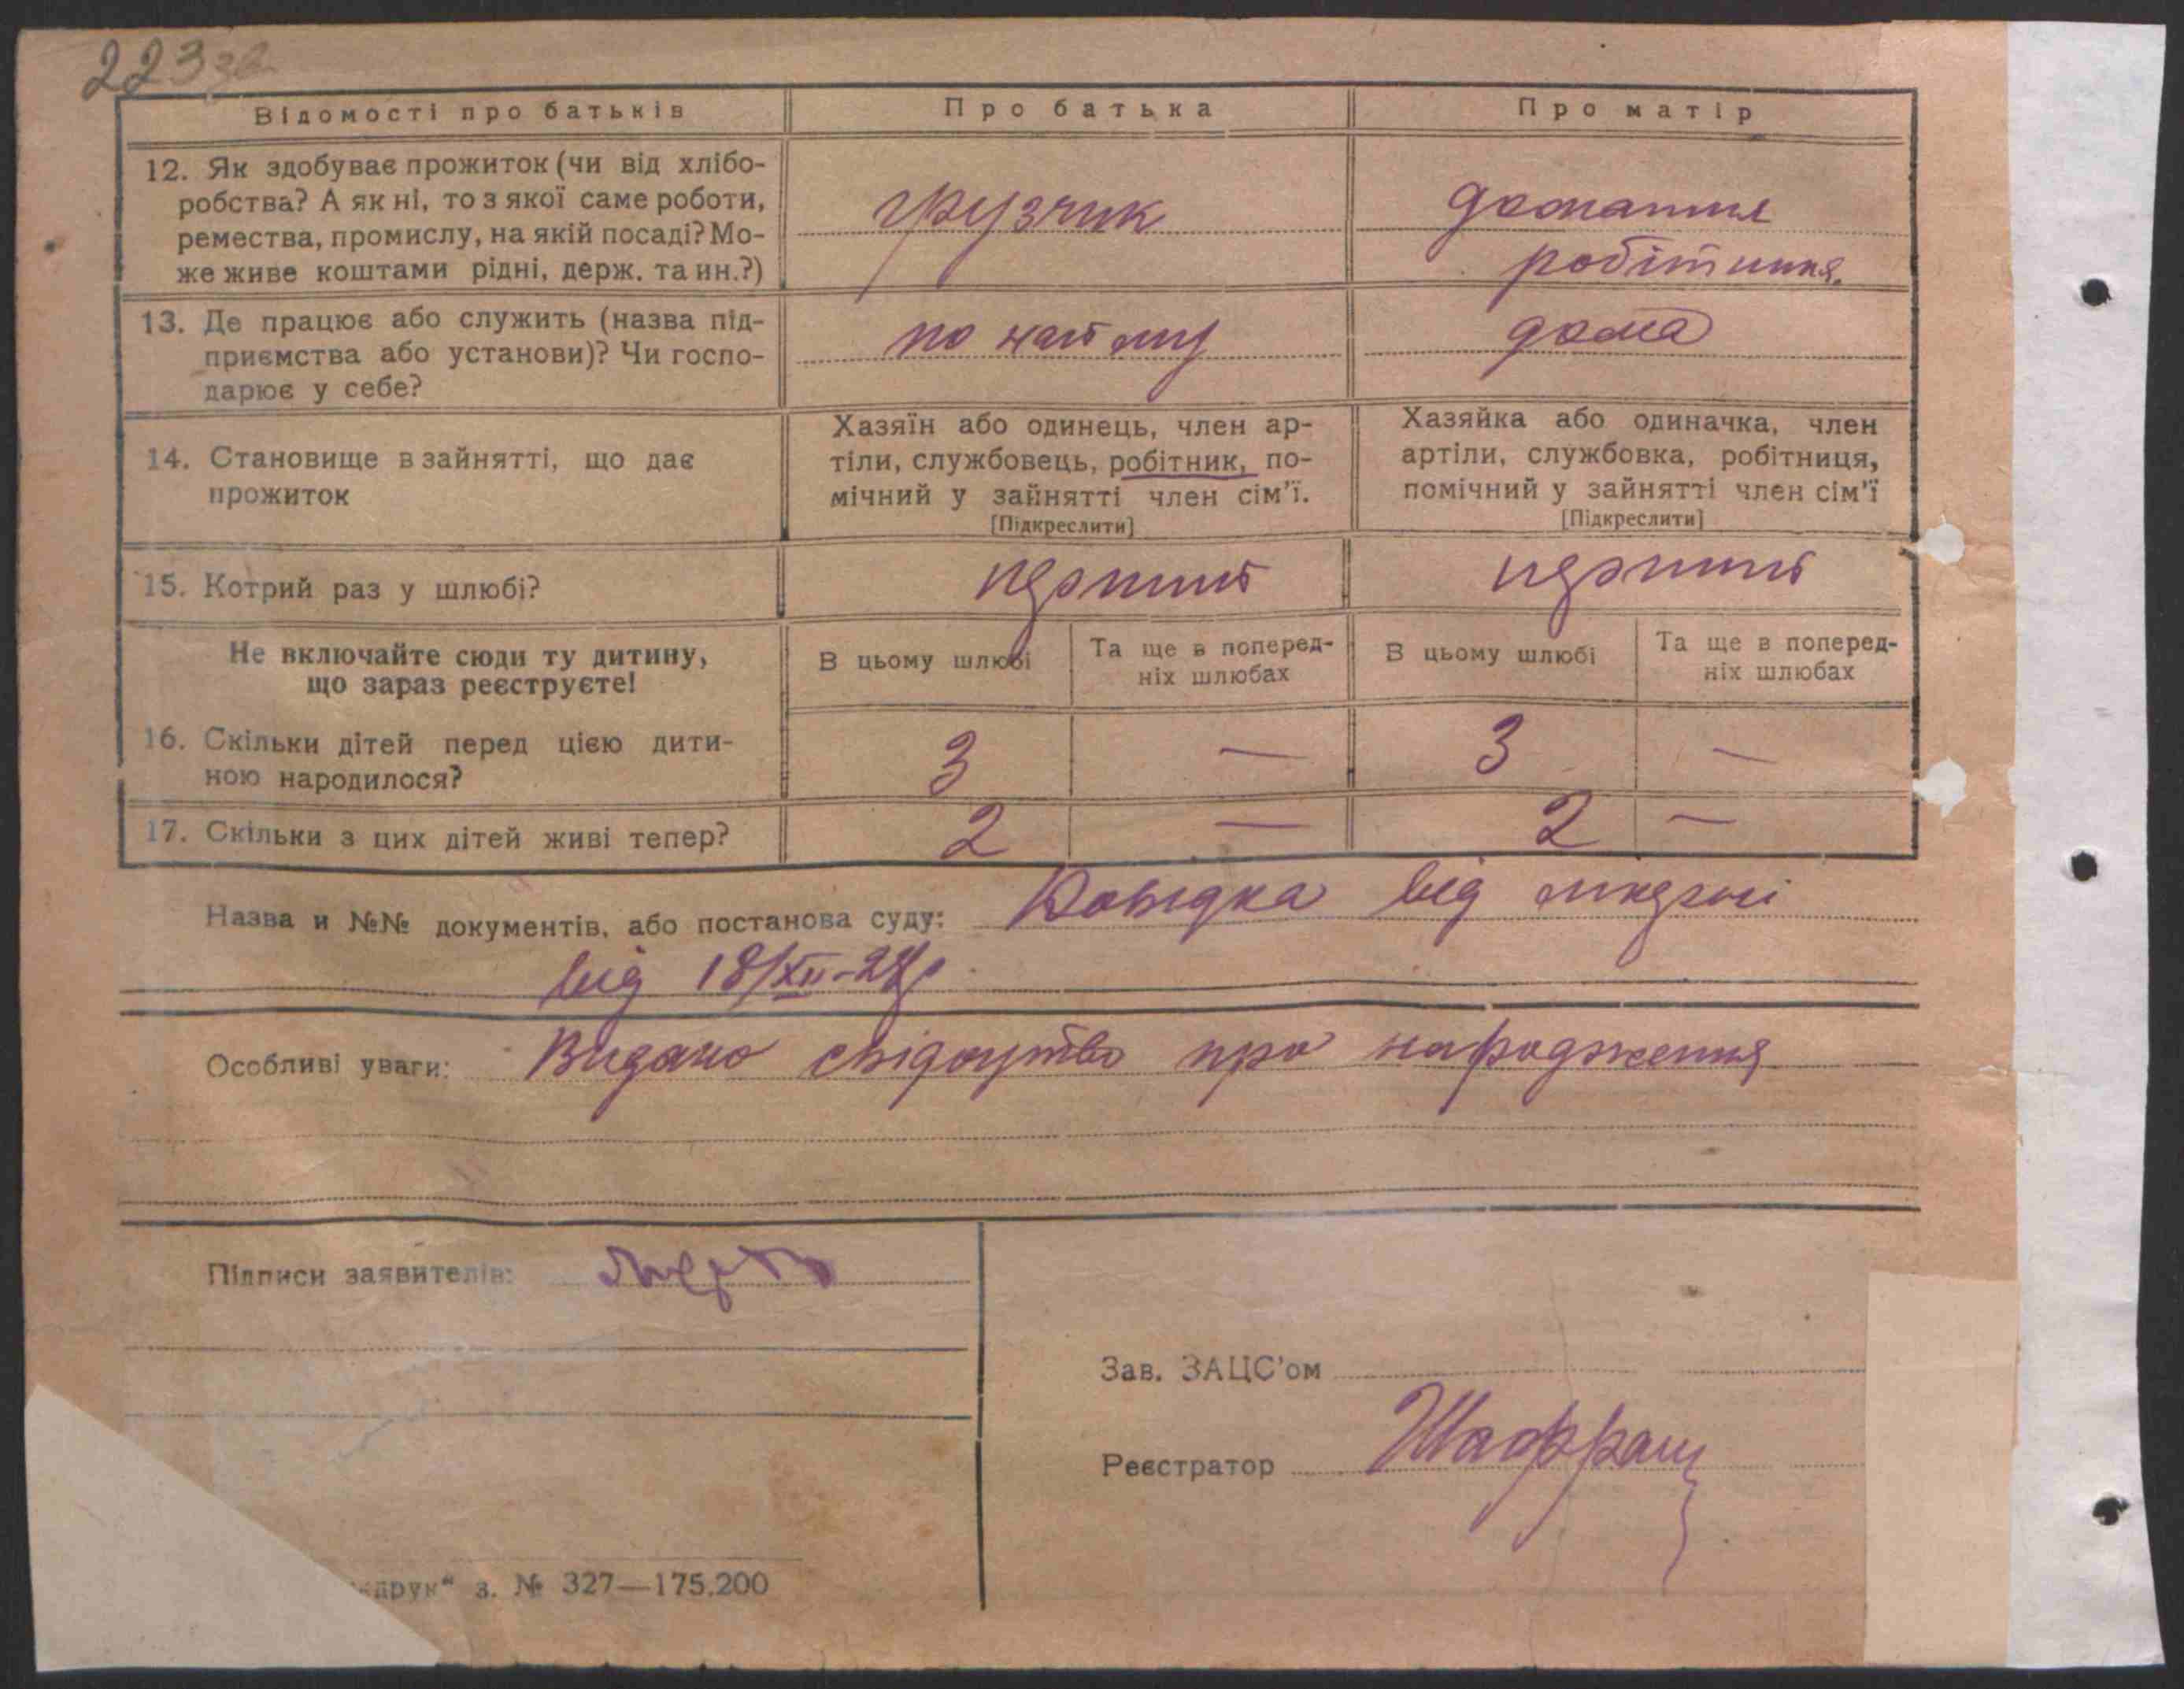 223 зв.
Відомості про батьків
Про батька
Про матір
12. Як здобуває прожиток (чи від хлібо-
робства? А як ні, то з якої саме роботи,
ремества, промислу, на якій посаді? Мо-
же живе коштами рідні, держ. та ин.?)
грузчик
домашня
робітниця.
13. Де працює або служить (назва під-
приємства або установи)? Чи госпо-
дарює у себе?
по найму
дома
14. Становище в зайнятті, що дає
прожиток
Хазяїн або одинець, член ар-
тіли, службовець, робітник, по-
мічний у зайнятті член сім'ї.
[Підкреслити]
Хазяйка або одиначка, член
артіли, службовка, робітниця,
помічний у зайнятті член сім'ї
[Підкреслити]
15. Котрий раз у шлюбі?
перший
перший
Не включайте сюди ту дитину,
що зараз реєструєте!
В цьому шлюбі
Та ще в поперед-
ніх шлюбах
В цьому шлюбі
Та ще в поперед-
ніх шлюбах
16. Скільки дітей перед цією дити-
ною народилося?
3 — 3 —
17. Скільки з цих дітей живі тепер?
2 — 2 —
Назва и №№ документів, або постанова суду: Довідка від лікарні
від 18/XII-28р
Особливі уваги: Видано свідоцтво про народження
Підписи заявителів:
Зав. ЗАЦС'ом
Реєстратор
друк" з. № 327—175.200